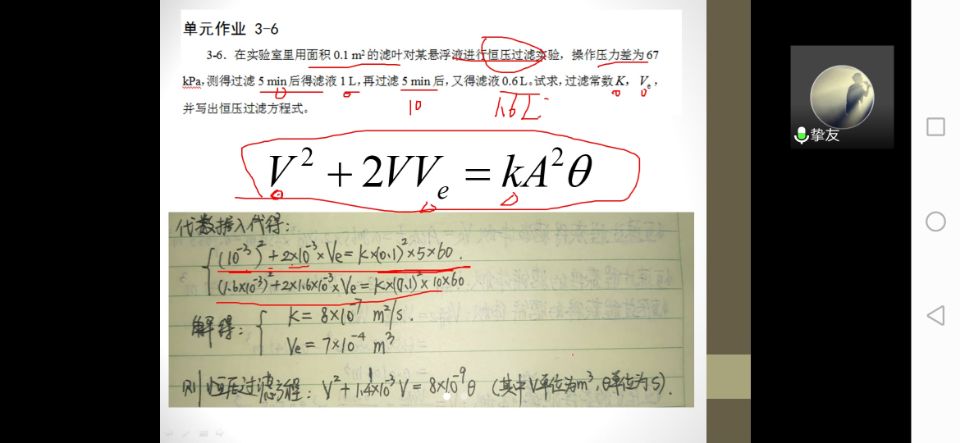 单元作业 3-6
3-6. 在实验室里用面积 0.1 m²的滤叶对某悬浮液进行恒压过滤实验，操作压力差为67
kPa,测得过滤 5 min后得滤液 1 L,再过滤 5 min后,又得滤液 0.6 L。试求,过滤常数K，Vₑ,
并写出恒压过滤方程式。
10 1.6L
V² + 2VVₑ = kA²θ
代数据入代得:
(10⁻³)² + 2×10⁻³×Ve = K×(0.1)²×5×60.
(1.6×10⁻³)² + 2×1.6×10⁻³×Ve = K×(0.1)²×10×60
解得: K = 8×10⁻⁷ m²/s.
Ve = 7×10⁻⁴ m³
则恒压过滤方程: V² + 1.4×10⁻³V = 8×10⁻⁹θ (其中V单位为m³,θ单位为s).
挚友